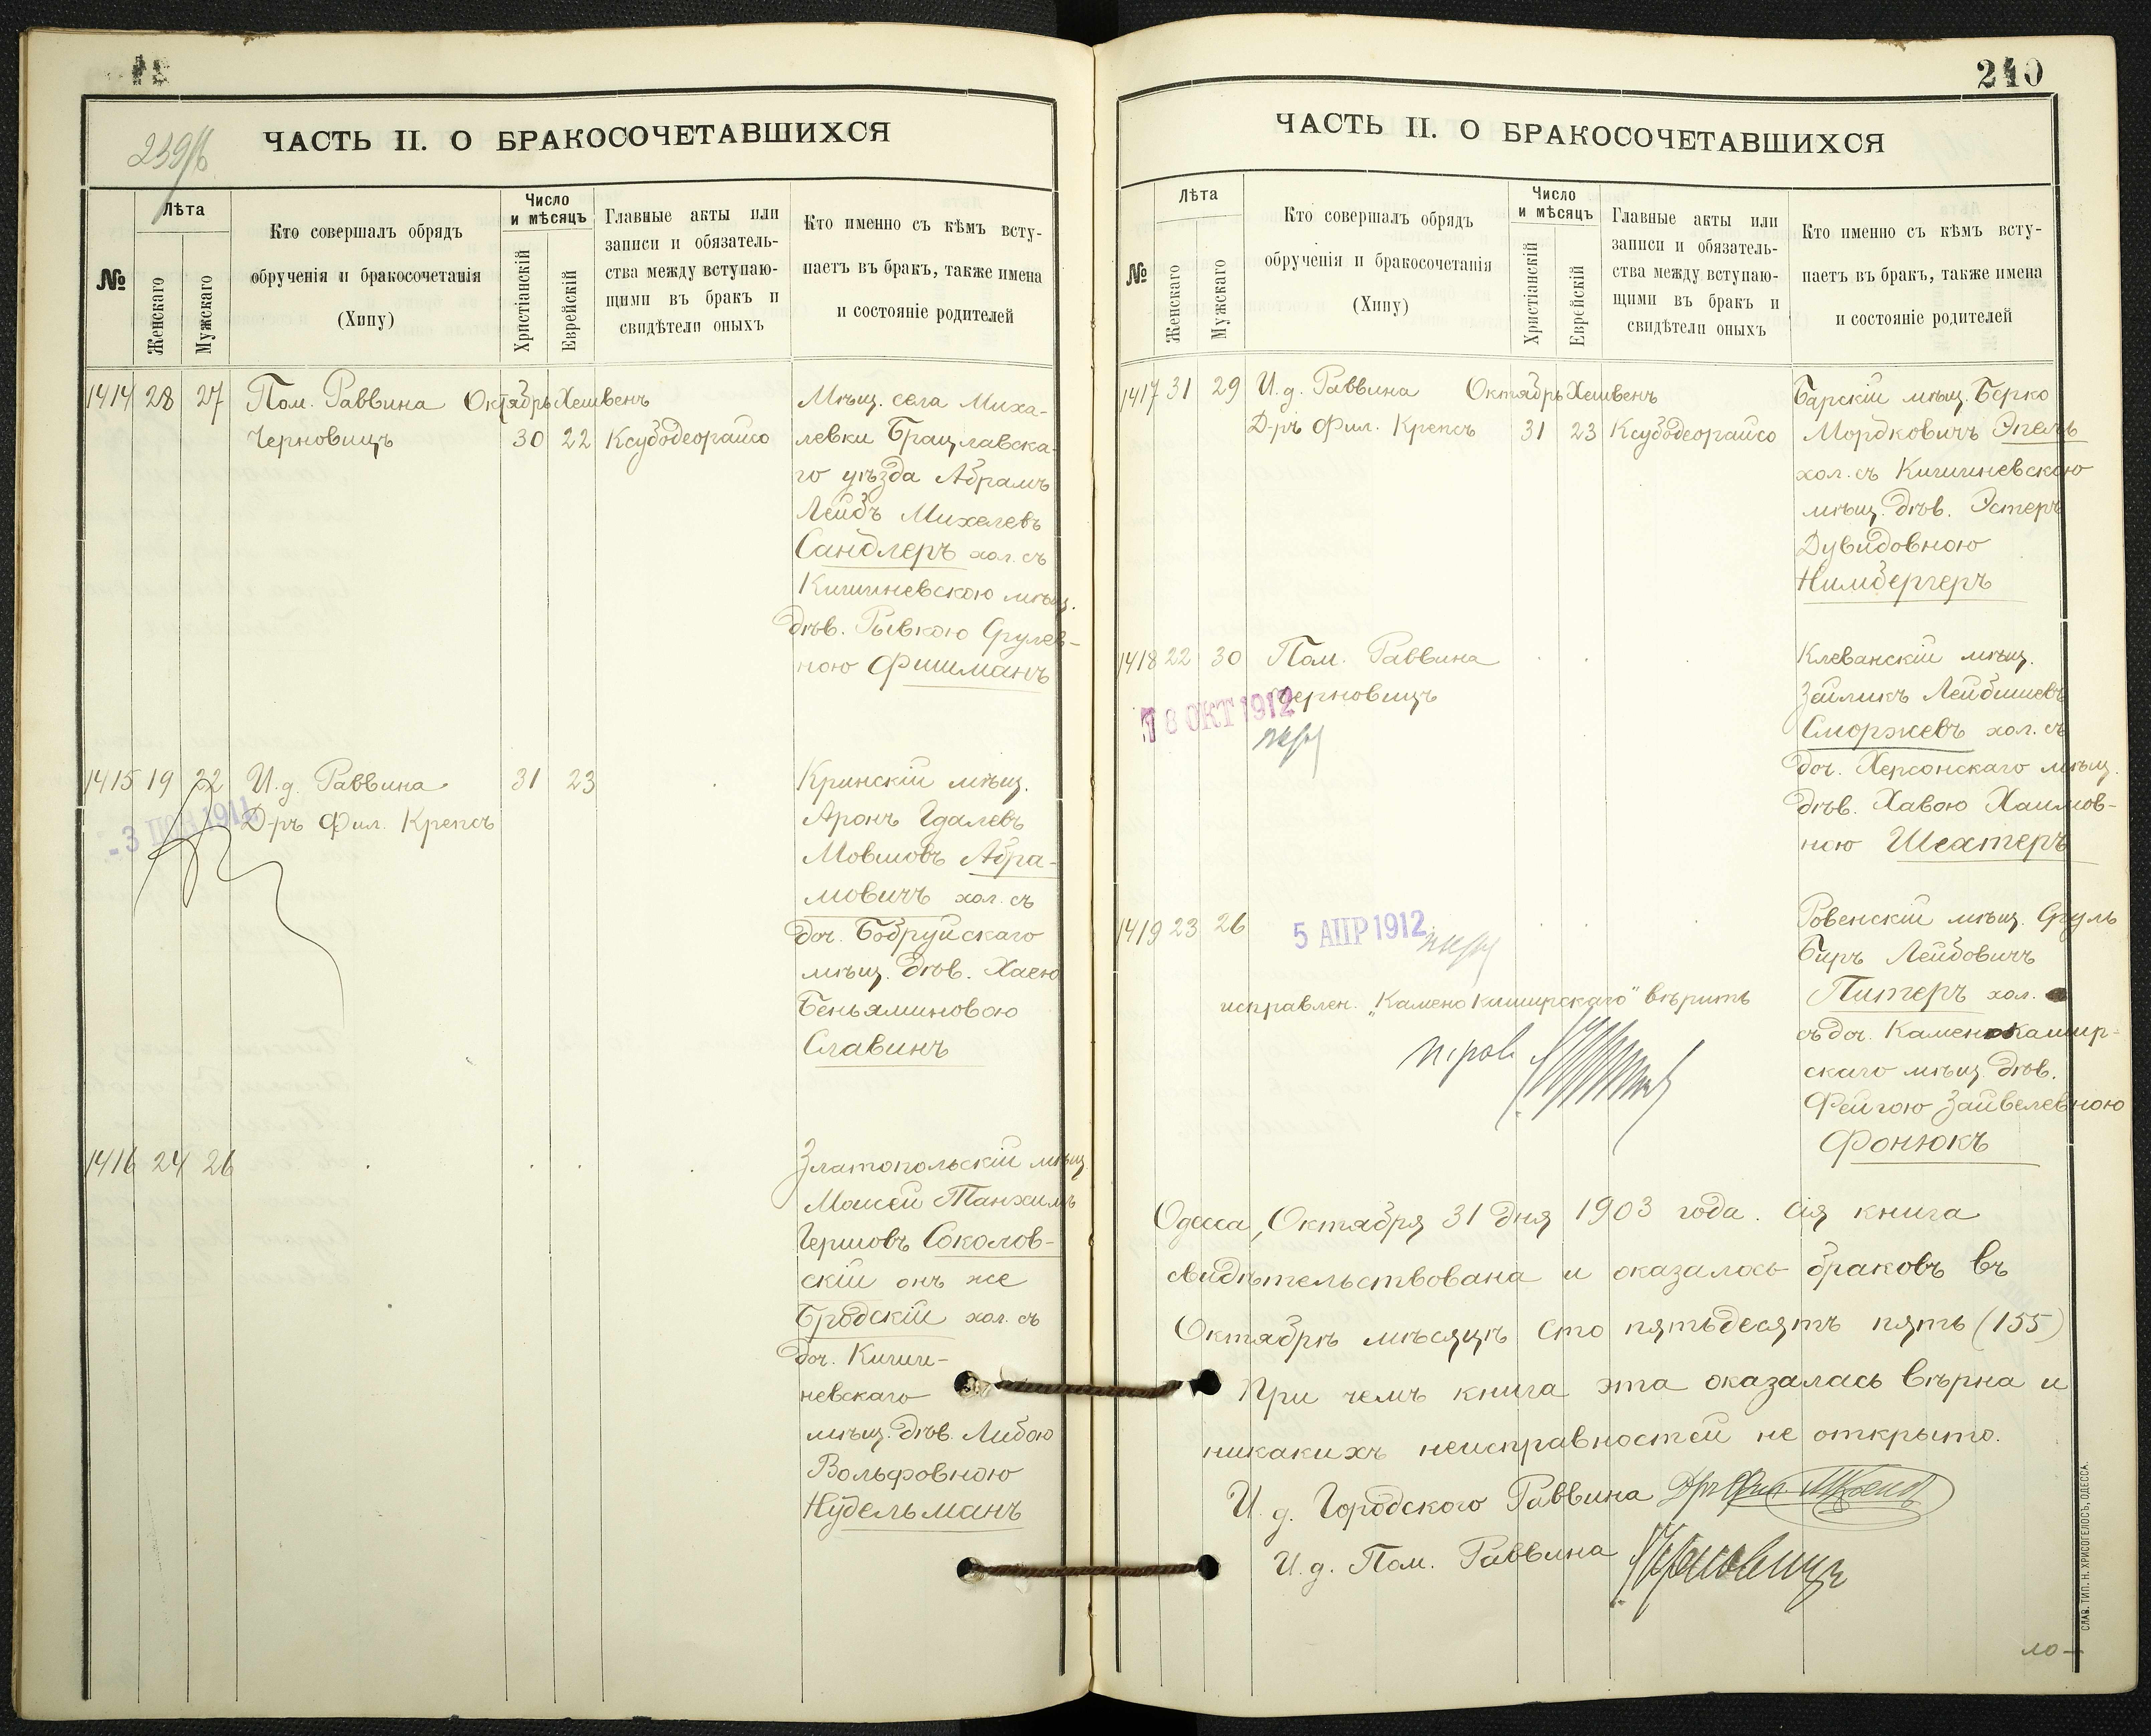 239/б
ЧАСТЬ II. О БРАКОСОЧЕТАВШИХСЯ
№
Лѣта
Женскаго
Мужскаго
Кто совершалъ обрядъ
обрученія и бракосочетанія
(Хипу)
Число
и мѣсяцъ
Христіанскій
Еврейскій
Главные акты или
записи и обязатель-
ства между вступаю-
щими въ бракъ и
свидѣтели оныхъ
Кто именно съ кѣмъ всту-
паетъ въ бракъ, также имена
и состояніе родителей
1414 28 27 Пом. Раввина Октябрь Хешвенъ
Черновицъ 30 22 Ксубодеорайсо
Мѣщ. села Миха-
левки Брацлавска-
го уѣзда Абрамъ
Лейбъ Михелевъ
Сандлеръ хол. съ
Кишиневскою мѣщ.
дѣв. Рывкою Срулев-
ною Фишманъ
1415 19 22 И. д. Раввина 31 23
Д-ръ Фил. Крепсъ
- 3 НОЯ 1911
Кринскій мѣщ.
Аронъ Гдалевъ
Мовшовъ Абра-
мовичъ хол. съ
доч. Бобруйскаго
мѣщ. дѣв. Хаею
Беньяминовою
Славинъ
1416 24 26
Златопольскій мѣщ.
Моисей Танхимъ
Гершовъ Соколов-
скій онъ же
Бродскій хол. съ
доч. Киши-
невскаго
мѣщ. дѣв. Либою
Вольфовною
Нудельманъ
240
ЧАСТЬ II. О БРАКОСОЧЕТАВШИХСЯ
№
Лѣта
Женскаго
Мужскаго
Кто совершалъ обрядъ
обрученія и бракосочетанія
(Хипу)
Число
и мѣсяцъ
Христіанскій
Еврейскій
Главные акты или
записи и обязатель-
ства между вступаю-
щими въ бракъ и
свидѣтели оныхъ
Кто именно съ кѣмъ всту-
паетъ въ бракъ, также имена
и состояніе родителей
1417 31 29 И. д. Раввина Октябрь Хешвенъ
Д-ръ Фил. Крепсъ 31 23 Ксубодеорайсо
Барскій мѣщ. Берко
Мордковичъ Эпель
хол. съ Кишиневскою
мѣщ. дѣв. Эстеръ
Дувидовною
Нимбергеръ
1418 22 30 Пом. Раввина
Черновицъ
8 ОКТ 1912
Клеванскій мѣщ.
Зейликъ Лейбишевъ
Сморжевъ хол. съ
доч. Херсонскаго мѣщ.
дѣв. Хавою Хаимов-
ною Шехтеръ
1419 23 26
5 АПР 1912
исправлен. „Камено Каширскаго" вѣрить
Ровенскій мѣщ. Сруль
Беръ Лейбовичъ
Питеръ хол.
съ доч. Камено Кашир-
скаго мѣщ. дѣв.
Фейгою Зайвелевною
Фонюкъ
Одесса, Октября 31 дня 1903 года. Сія книга
свидѣтельствована и оказалось браковъ въ
Октябрѣ мѣсяцѣ сто пятьдесятъ пять (155)
При чемъ книга эта оказалась вѣрна и
никакихъ неисправностей не открыто.
И. д. Городского Раввина
И. д. Пом. Раввина Черновицъ
СЛАВ. ТИП. Н. ХРИСОГЕЛОСЪ, ОДЕССА.